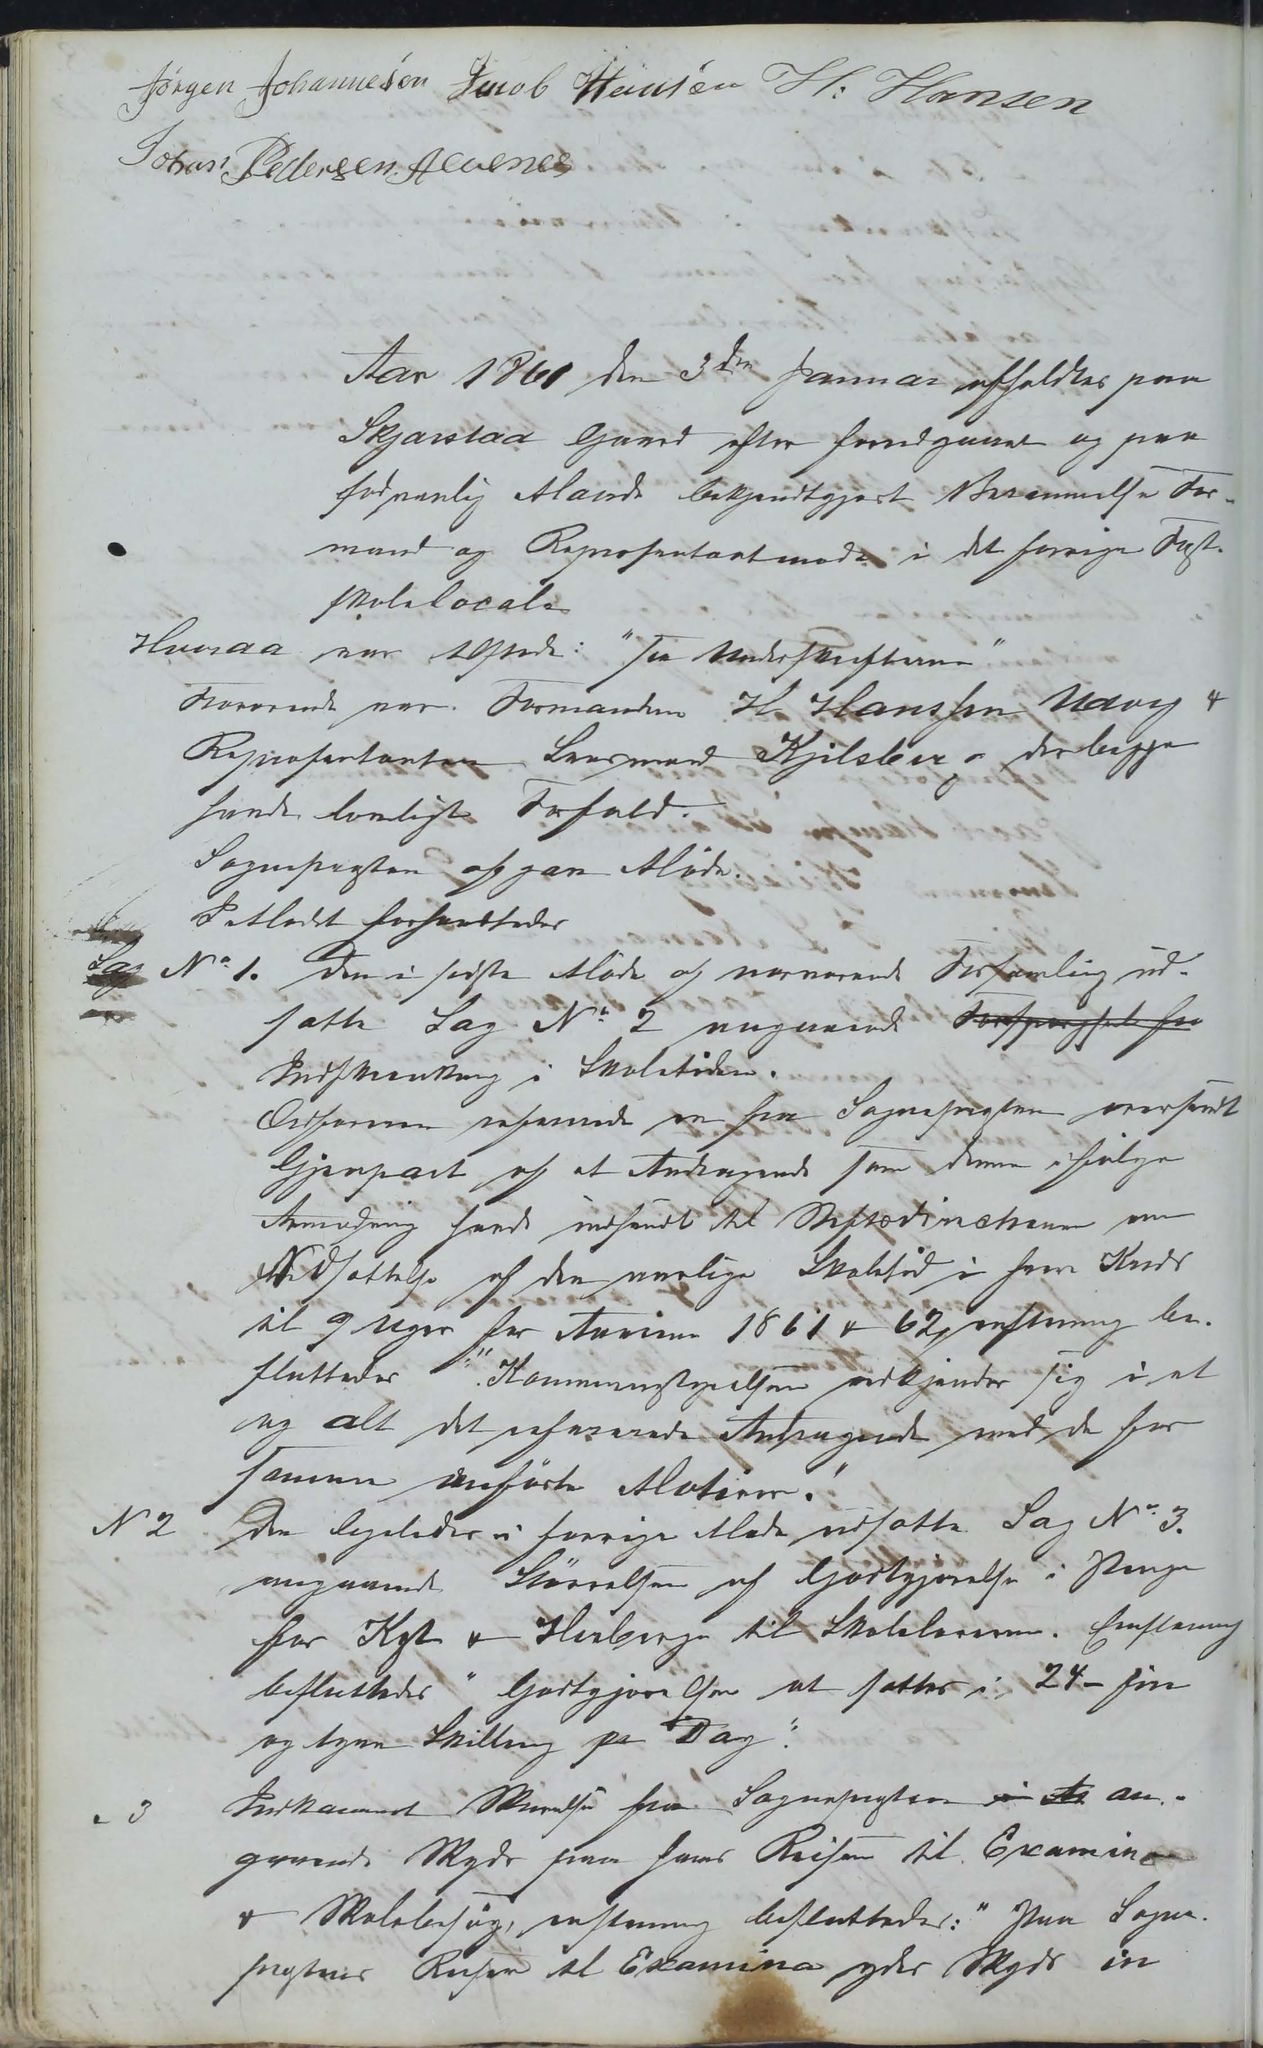 Jørgen Johannesen Jacob Hansen H: Hansen
Johan Pedersen Alvenes
Aar 1861 den 3den Januar afholdtes paa
Skjærstad Gaard efter foredgaaet og paa
sædvanlig Maade bekjendtgjort Berammelse For-
mand og Repræsentantmøde i det forrige Fast-
skolelocale
Hvoraa var tilstede: "see Underskrifterne"
Fraværende var. Formanden H Hanssen Udvig &
Repræsentanten Lensmand Kjilsberg - der begge
havde lovligt Forfald.
Sognepresten afgav Møde.
I Mødet forhandledes
Sag No 1. Den i sidste Møde af nærværende Forsamling ud-
satte Sag No 2 angaaende Forespørgsel fra
Indskrænkning i Skoletiden.
Ordføreren refererede en fra Sognepresten oversendt
Gjenpart af et Andragende som denne ifølge
Anmodning havde indsendt til Stiftsdirectionen om
Nedsættelse af den aarlige Skoletid i hver Kreds
til 9 Uger for Aarene 1861 & 62, hvorefter be-
sluttedes: "Kommunestyrelsen vedkjender sig i et
og alt det refererede Andragende med de for
samme anførte Motiver."
N 2 Den ligeledes i forrige Møde udsatte Sag No 3.
angaaende Størrelsen af Godtgjørelse i Penge
for Kost & Herberge til Skolelæreren.
besluttedes "Godtgjørelsen at sættes i 24 - fire
og tyve Skilling pr Dag".
" 3 Indkommet Skrivelse fra Sognepresten i an-
gaaende Skyds paa hans Reiser til Examina
& Skolebesøg, besluttedes: "Paa Sogne-
prestens Reiser til Examina ydes Skyds in